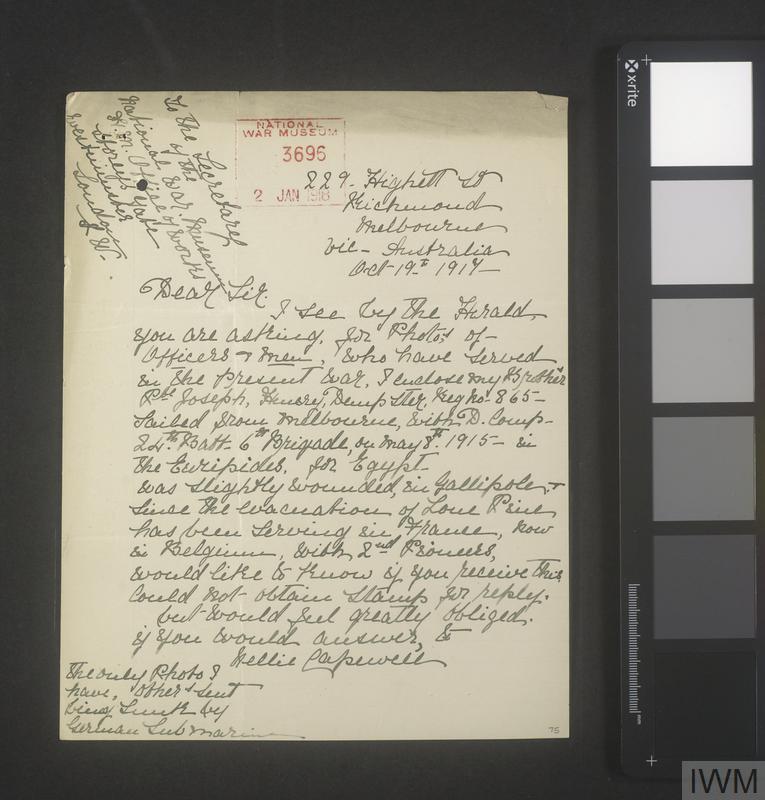 To the Secretary
of the
National War Museum
H.M Office of Works
Storey's Gate
Westminster
London
S.W.
NATIONAL
WAR MUSEUM
3696
2 JAN 1918
229- Highett St
Richmond
Melbourne
Vic- Australia
Oct-19th 1917-
Dear Sir.
I see by the Herald,
you are asking, for Photos of-
Officers & men, who have served
in the present War, I enclose my Brother
Pte Joseph, Henry, Dempster, Reg No- 865-
Sailed from Melbourne, with D. Comp-
24th Batt- 6th Brigade, on May 8th 1915- in
the Euripides, for Egypt-
was slightly wounded, in Gallipole, &
Since the evacuation of Lone Pine
has been serving in France, now
in Belgium, with 2nd Pioneers,
would like to know if you receive this
Could not obtain Stamp for reply.
but would feel greatly obliged.
if you would answer, to
Nellie Capewell
The only Photo I
have, others sent
being Sunk by
German Submarine
75
x-rite
mm
IWM